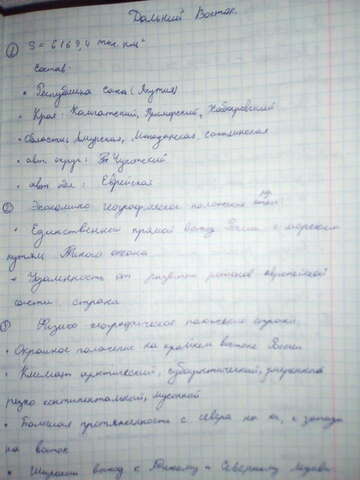 Дальний Восток.
① S = 6169,4 тыс км²
Состав:
• Республика Саха (Якутия)
• Края: Камчатский, Приморский, Хабаровский
• Области: Амурская, Магаданская, Сахалинская
• авт. округ: Чукотский
• авт. обл: Еврейская
② Экономико географическое положение
• Единственный прямой выход России к морским
путям Тихого океана
• Удаленность от развитых регионов европейской
части страны
③ Физико географическое положение
• Окраинное положение на крайнем востоке России
• Климат арктический, субарктический, умеренный
резко континентальный, муссонный
• Большая протяженность с севера на юг, с запада
на восток
• Широкий выход к Тихому и Северному